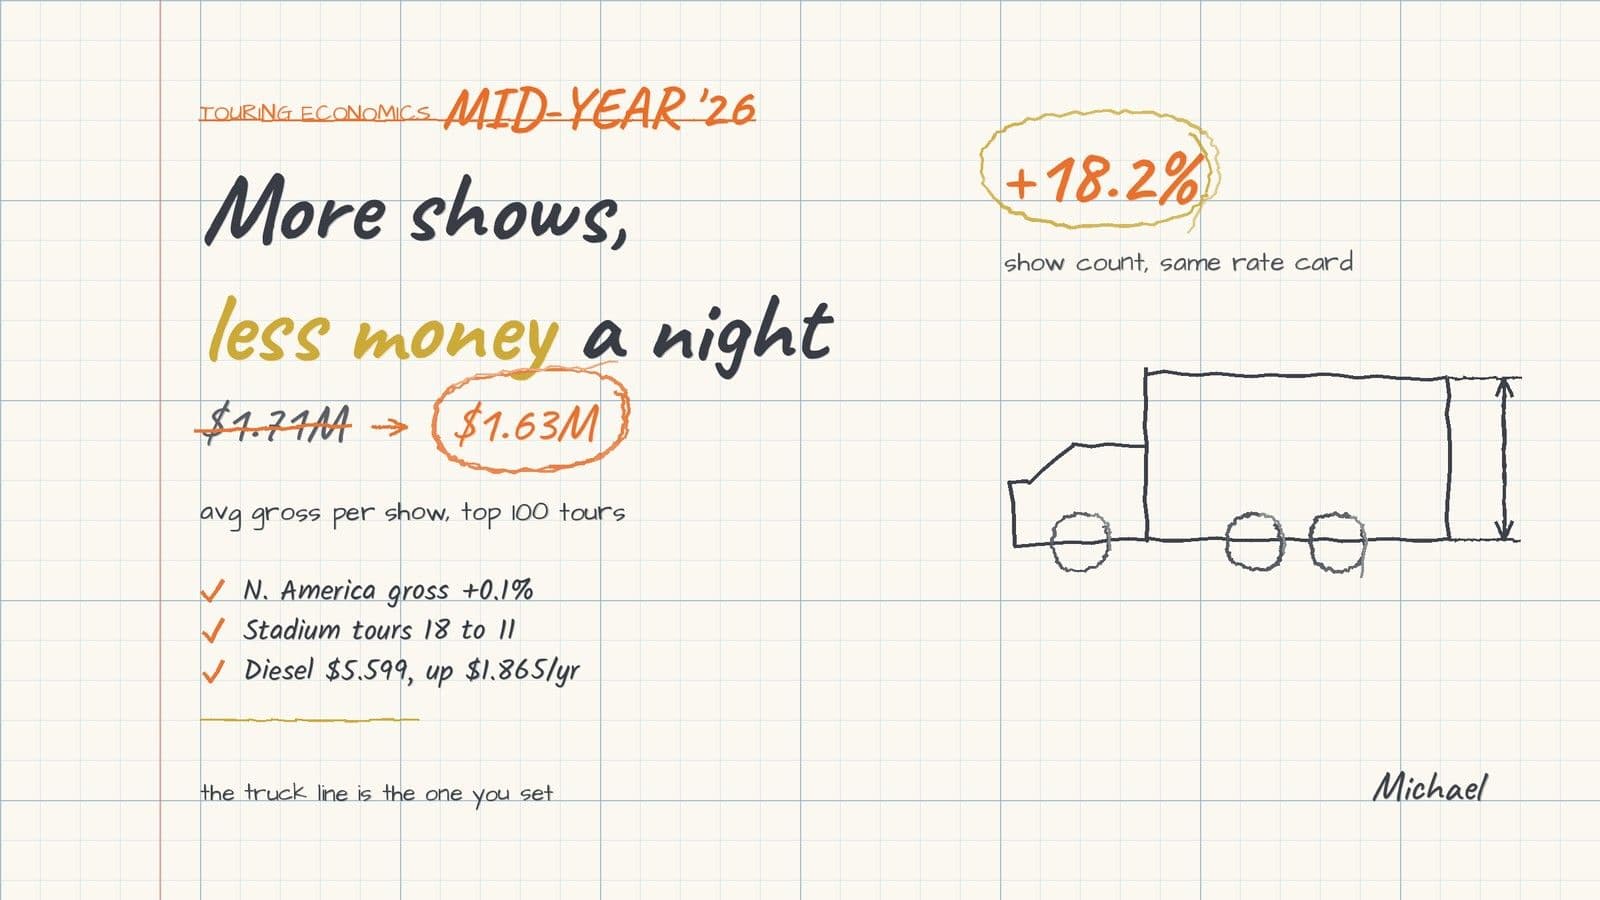 TOURING ECONOMICS MID-YEAR '26
More shows,
less money a night
$1.71M → $1.63M
avg gross per show, top 100 tours
✓ N. America gross +0.1%
✓ Stadium tours 18 to 11
✓ Diesel $5.599, up $1.865/yr
the truck line is the one you set
+18.2%
show count, same rate card
Michael